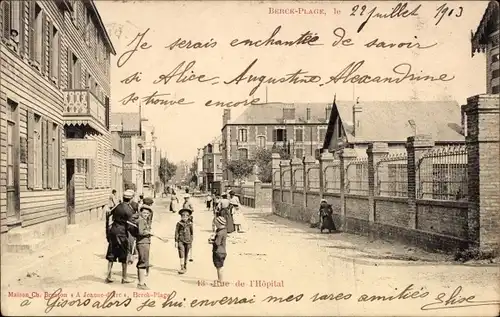 BERCK-PLAGE, le 22 juillet 1903
Je serais enchantée de savoir
si Alice, Augustine Alexandrine
se trouve encore
13 Rue de l'Hôpital
Maison Ch. Brunton « A Jeanne-d'Arc », Berck-Plage
à Gisors alors je lui enverrai mes rares amitiés Elise